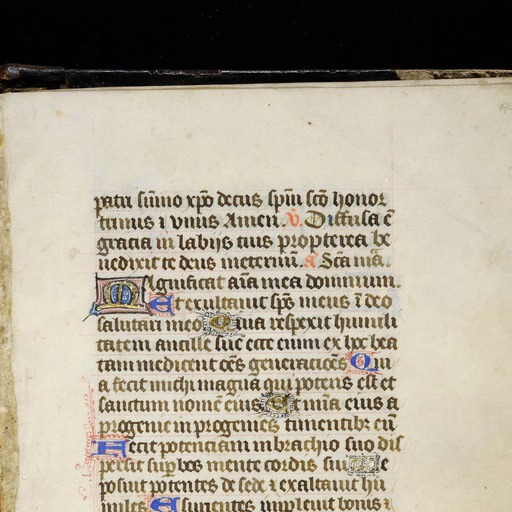 patri sūmo xp̄o decus spūi scō honor
trinus ⁊ vnus Amen. V̄. Diffusa ē
gracia in labijs tuis propterea be
nedixit te deus ineternū. a Scā mā.
Magnificat aīa mea dominum.
Et exultauit sp̄s meus ī deo
salutari meo Quia respexit humili
tatem ancille sue ecce enim ex hoc bea
tam me dicent oēs generaciōes Qui
a fecit michi magna qui potens est et
sanctum nomē eius Et mīa eius a
progenie in progenies timentibꝫ eū
Fecit potentiam in brachio suo dis
persit supbos mente cordis sui De
posuit potentes de sede ⁊ exaltauit hu
miles Esurientes impleuit bonis ⁊